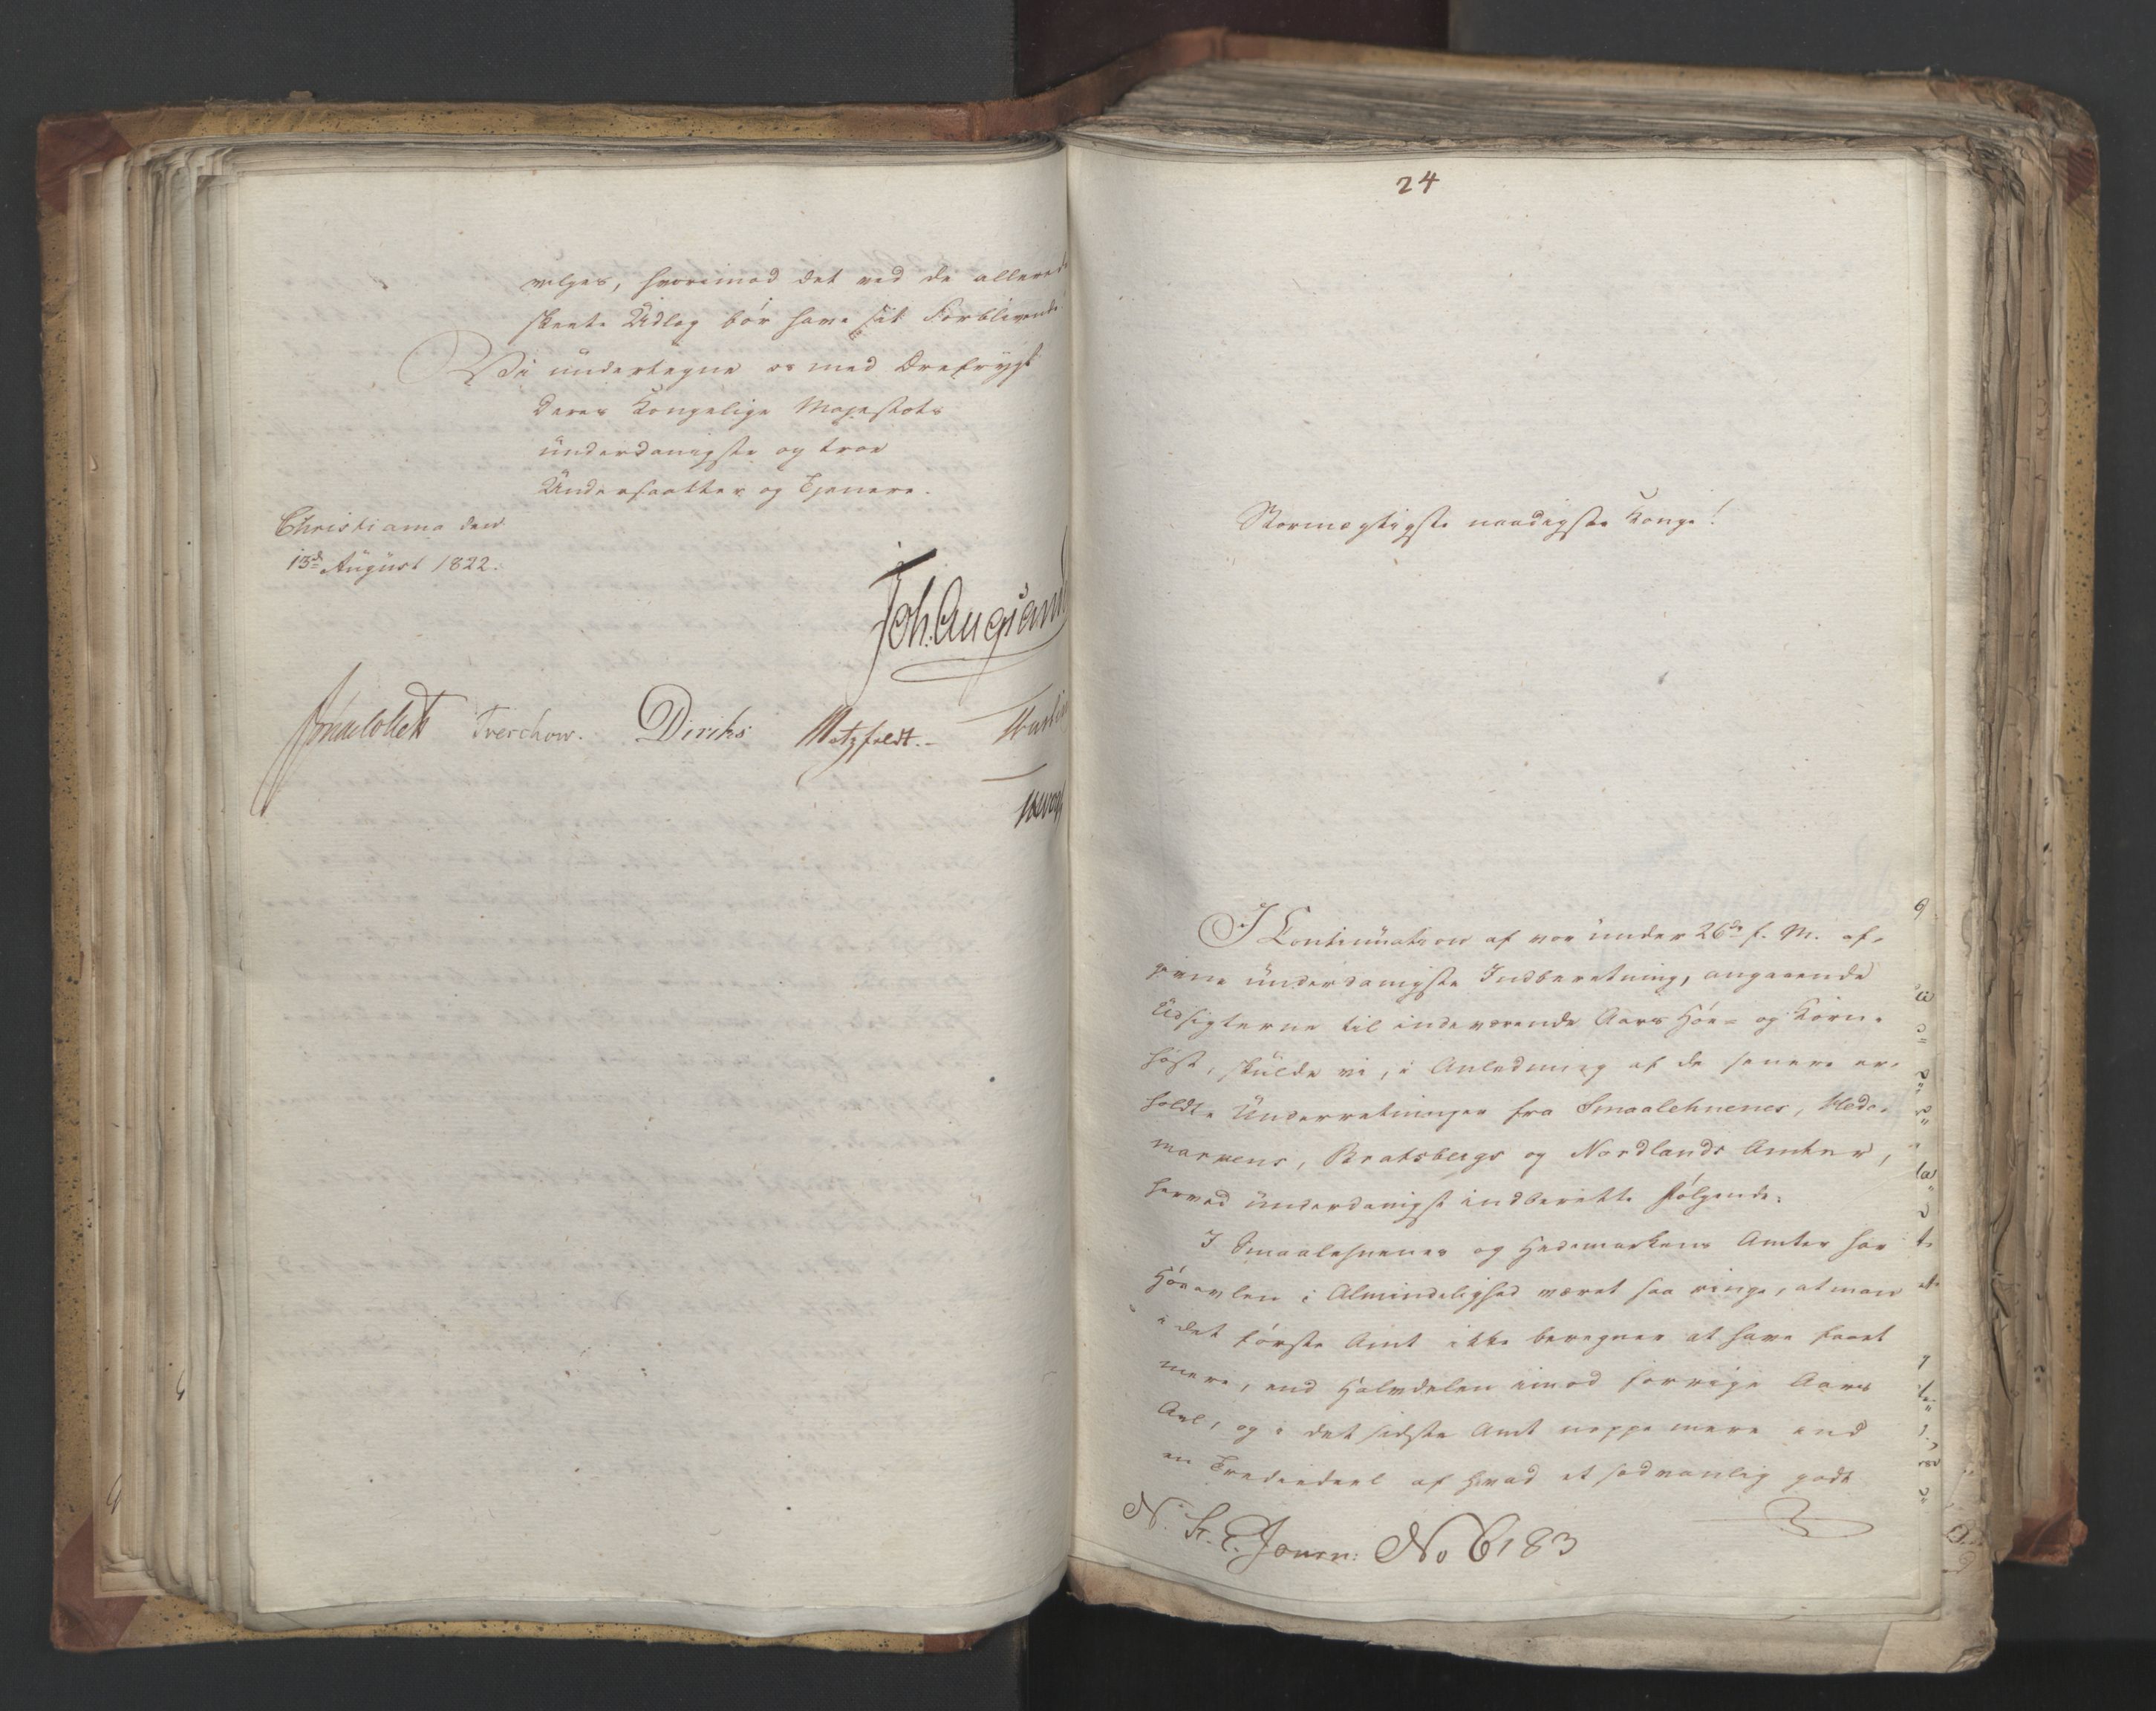 vilges, hvorimod det ved de allerede
skeete Udlæg bör have sit Forblivende.
Vi undertegne os med Ærefrygt
Deres Kongelige Majestæts
underdanigste og troe
Undersaatter og Tjenere.
Christiania den
13de August 1822.
Joh. Aug. Sand
Jonas Collett Treschow. Diriks Motzfeldt.
24
Stormægtigste naadigste Konge!
I Continuation af vor under 26de f. M. af-
givne underdanigste Indberetning, angaaende
Udsigterne til indeværende Aars Höe- og Korn-
höst, skulde vi, i Anledning af de senere er-
holdte Underretninger fra Smaalehnenes, Hede-
markens, Bratsbergs og Nordlands Amter,
herved underdanigst indberette fölgende:
I Smaalehnenes og Hedemarkens Amter har
Höeavlen i Almindelighed været saa ringe, at man
i det förste Amt ikke beregner at have faaet
mere, end Halvdelen imod forrige Aars
Avl, og i det sidste Amt neppe mere end
en Trediedeel af hvad et sædvanlig godt
N. St. E. Journ: No 6183